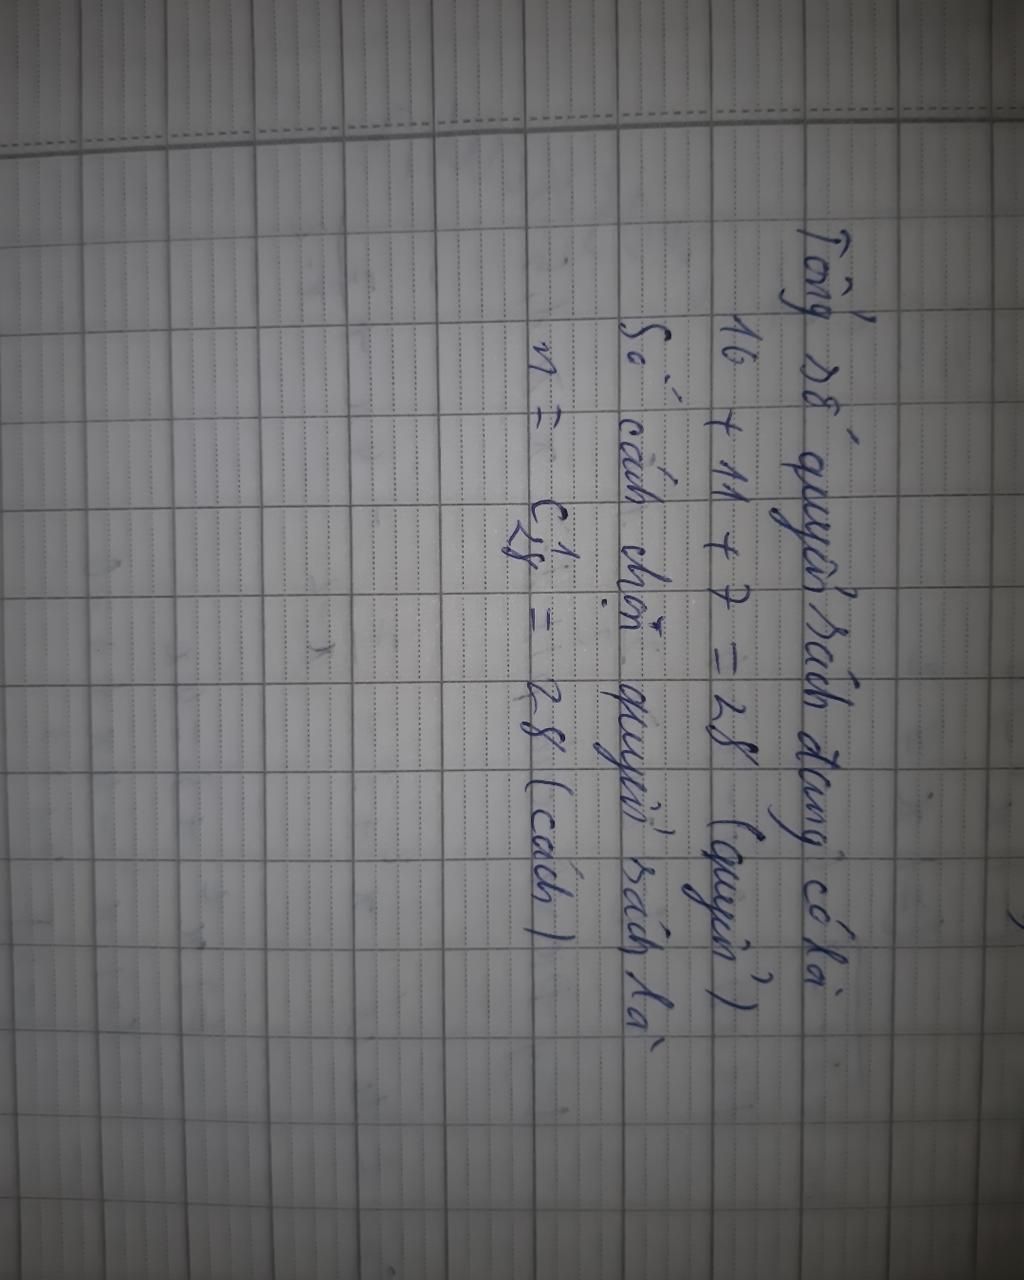 Tổng số quyển sách đang có là
10 + 11 + 7 = 28 (quyển)
Số cách chọn quyển sách là
n = C¹₂₈ = 28 (cách)